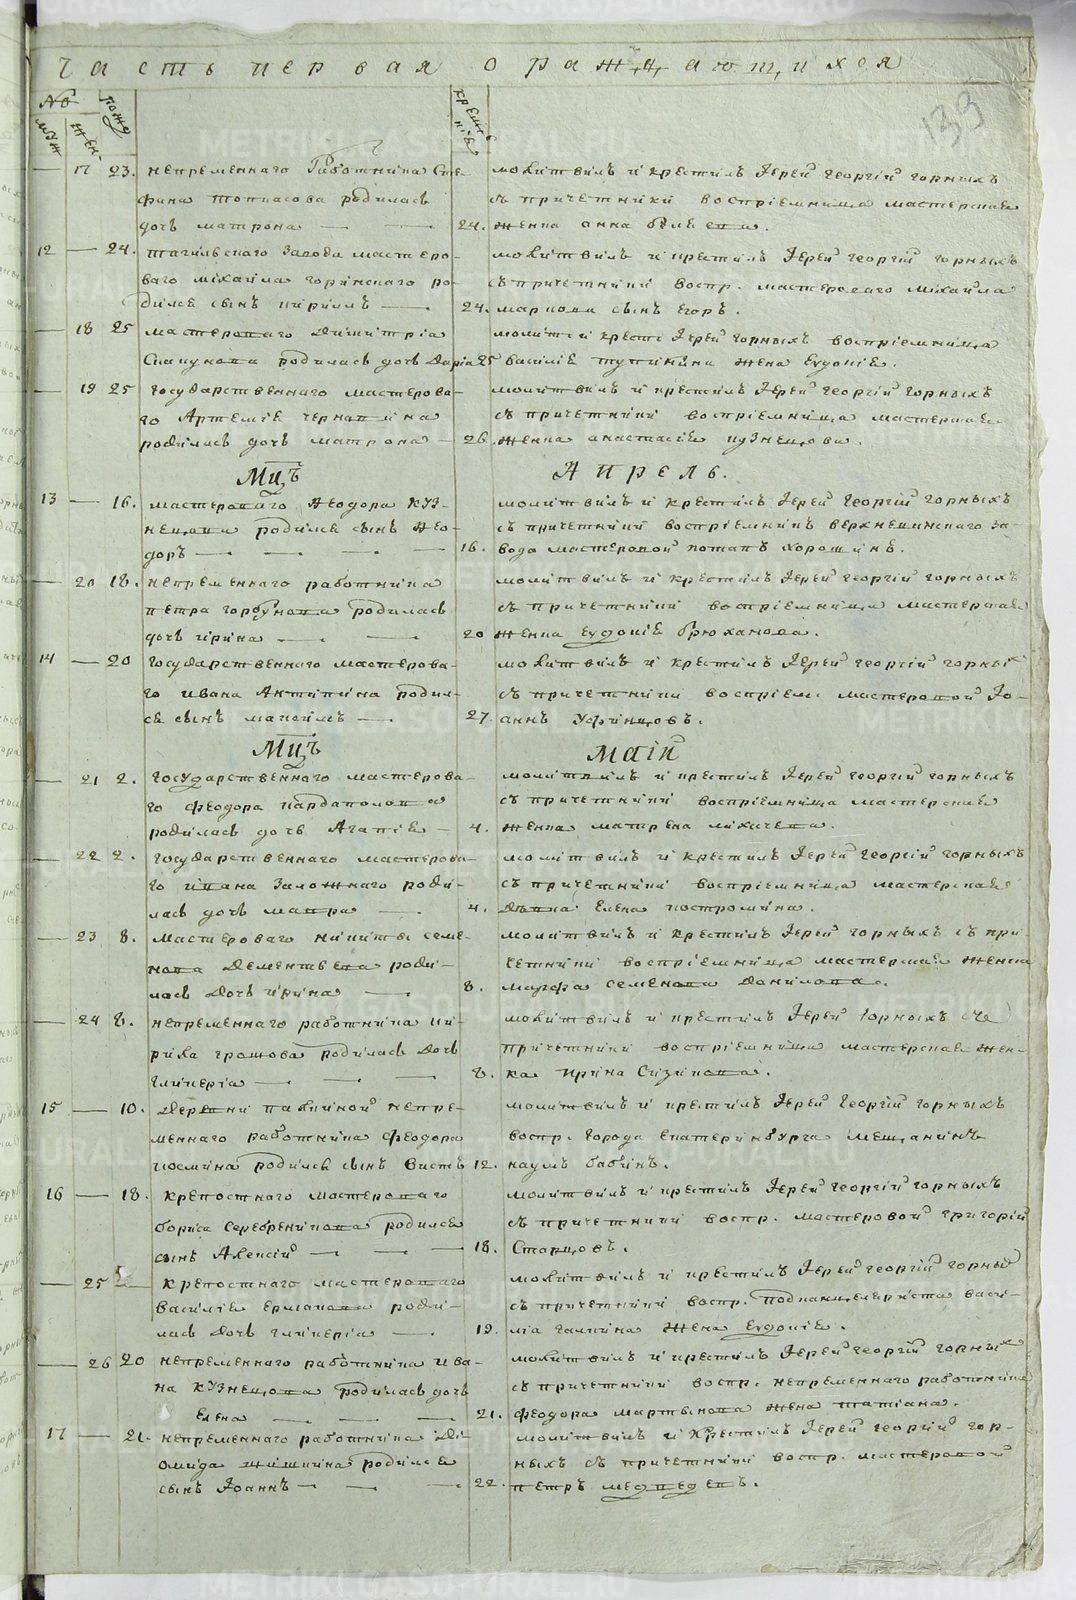 Часть первая о раждающихся
№ рожд крещение
муж жен.
139
— 17 23. непременнаго Работника Сте-
фана Топпасова родилась
дочь матрона — —
молитвилъ и крестилъ Іерей Георгій Горныхъ
съ причетники воспріемница мастерская
24. женка анна
12 — 24. тагильскаго Завода мастеро-
ваго михаила горинскаго ро-
дился сынъ кирилъ —
молитвилъ и крестилъ Іерей Георгій Горныхъ
съ причетники воспр. мастероваго михаила
24. маркова сынъ Егоръ.
— 18 25 мастероваго Димитріа
родилась дочь Даріа
молит и крест Іерей Горныхъ воспріемница
25 василіе жена Евдокіе.
— 19 25 Государственнаго мастерова-
го Артеміе
родилась дочь матрона —
молитвилъ и крестилъ Іерей Георгій Горныхъ
съ причетники воспріемница мастерская
26. женка анастасіе кузнецова.
Мцъ Априль.
13 — 16. мастероваго Феодора куз-
нецова родился сынъ Фео-
доръ — — — —
молитвилъ и крестилъ Іерей Георгій Горныхъ
съ причетники воспріемникъ верхнеинскаго за-
16. вода мастеровой потапъ хорошинъ.
— 20 18. непременнаго работника
петра горбунова родилась
дочь ирина — —
молитвилъ и крестилъ Іерей Георгій Горныхъ
съ причетники воспріемница мастерская
20 женка Евдокіе брюханова.
14 — 20 Государственнаго мастерова-
го ивана Антипина родил-
се сынъ максимъ —
молитвилъ и крестилъ Іерей Георгій Горны
съ причетники воспріем мастеровой Іо-
27. аннъ Уфинцовъ.
Мцъ Маій
— 21 2. Государственнаго мастерова-
го Феодора кардаполова
родилась дочь Агапіе —
молитвилъ и крестилъ Іерей Георгій Горныхъ
съ причетники воспріемница мастерская
4. женка матрена михичева.
— 22 2. Государственнаго мастерова-
го ивана Заложнаго роди-
лась дочь мавра —
молитвилъ и крестилъ Іерей Георгій Горныхъ
съ причетники воспріемница мастерская
4. девка Елена костромина.
— 23 8. мастероваго никиты семе-
нова Дементьева роди-
лась Дочь ирина —
молитвилъ и крестилъ Іерей Горныхъ съ при-
четники воспріемница мастерская женка
8. марфа семенова данилова.
— 24 8. непременнаго работника ки-
рила громова родилась Дочь
гликеріа — — —
молитвилъ и крестилъ Іерей Горныхъ съ
причетники воспріемница мастерская жен-
8. ка ирина Сизикова.
15 — 10. Деревни павлиной непре-
меннаго работника феодора
космина родился сынъ
молитвилъ и крестилъ Іерей Георгій Горныхъ
воспр. Города Екатеринбурга мещанинъ
12. наумъ бабинъ.
16 — 18. крепостнаго мастероваго
бориса серебреникова родился
сынъ Алексій — — —
молитвилъ и крестилъ Іерей Георгій Горныхъ
съ причетники воспр. мастеровой григорій
18. Старцовъ.
— 25 крепостнаго мастероваго
Василіе Ермакова роди-
лась Дочь гликеріа —
молитвилъ и крестилъ Іерей Георгій Горны
съ причетники воспр. подканцеляриста васи-
19. ліа галкина жена Евдокіе.
— 26 20 непременнаго работника ива-
на кузнецова родилась дочь
Елена — — —
молитвилъ и крестилъ Іерей Георгій Горны
съ причетники воспр. непременнаго работника
21. феодора мартынова жена татіана.
17 — 21. непременнаго работника Ді-
омида шишкина родился
сынъ Іоаннъ — — —
молитвилъ и крестилъ Іерей Георгій Гор-
ныхъ съ причетники воспр. мастеровой
22. петръ медведевъ.